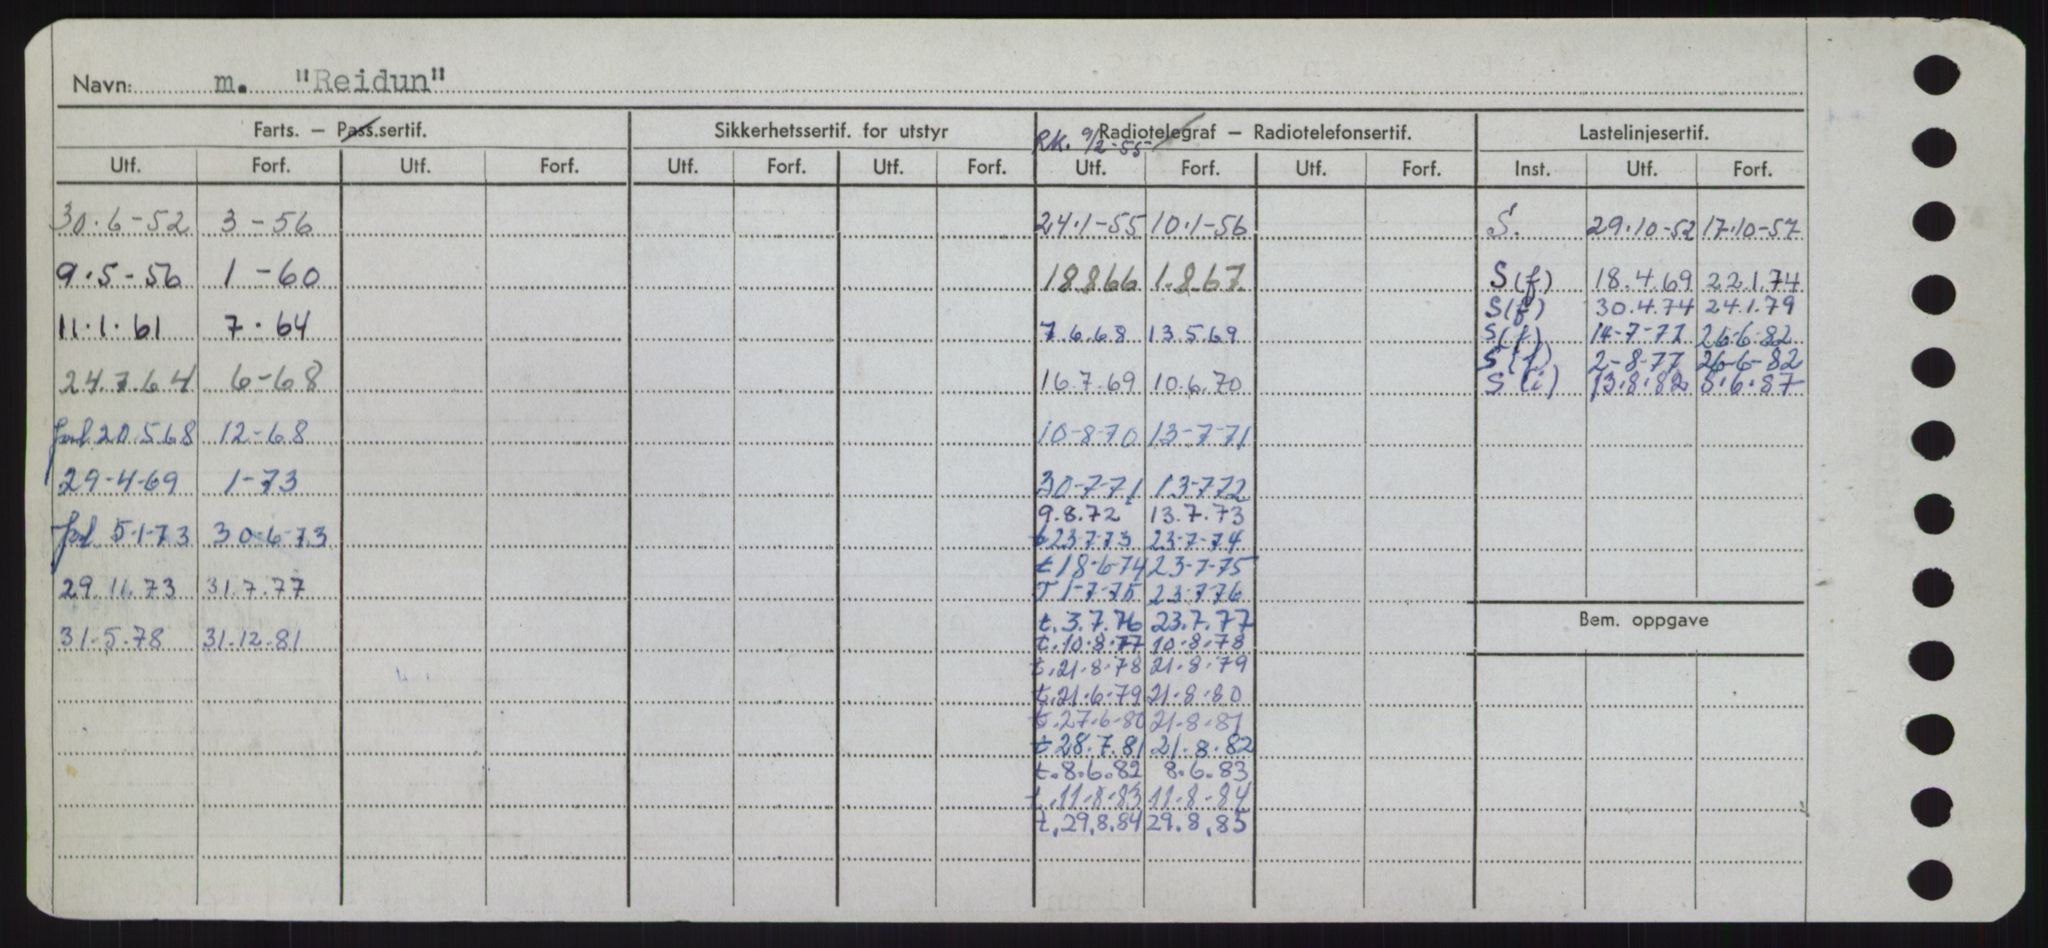 Navn: m. "Reidun"
Farts. – Pass.sertif. Sikkerhetssertif. for utstyr Radiotelegraf – Radiotelefonsertif. Lastelinjesertif.
RK. 9/2-55
Utf. Forf. Utf. Forf. Utf. Forf. Utf. Forf. Utf. Forf. Utf. Forf. Inst. Utf. Forf.
30.6-52 3-56 24.1-55 10.1-56 S. 29.10-52 17.10-57
9.5-56 1-60 18866 1.8.67 S(f) 18.4.69 22.1.74
S(f) 30.4.74 24.1.79
11.1.61 7.64 7.6.68 13.5.69 S(f) 14-7-77 26-6-82
S(f) 2-8-77 26-6-82
24.7.64 6-68 16.7.69 10.6.70 S(i) 13.8.82 8.6.87
forl 20.5.68 12-68 10-8-70 13-7-71
29-4-69 1-73 30-7-71 13-772
9.8.72 13.7.73
forl 5-1-73 30-6-73 t 23-7-73 23-7-74
t 18-6-74 23-7-75
29.11.73 31.7.77 T 1-7-75 23-7-76
t. 3.7.76 23.7.77
31.5.78 31.12.81 t. 10.8.77 10.8.78
t. 21.8.78 21.8.79
t. 21.6.79 21.8.80
t. 27.6-80 21.8.81
t 28.7.81 21.8.82
t. 8.6.82 8.6.83
t. 11-8-83 11-8-84
t. 29.8.84 29.8.85
Bem. oppgave